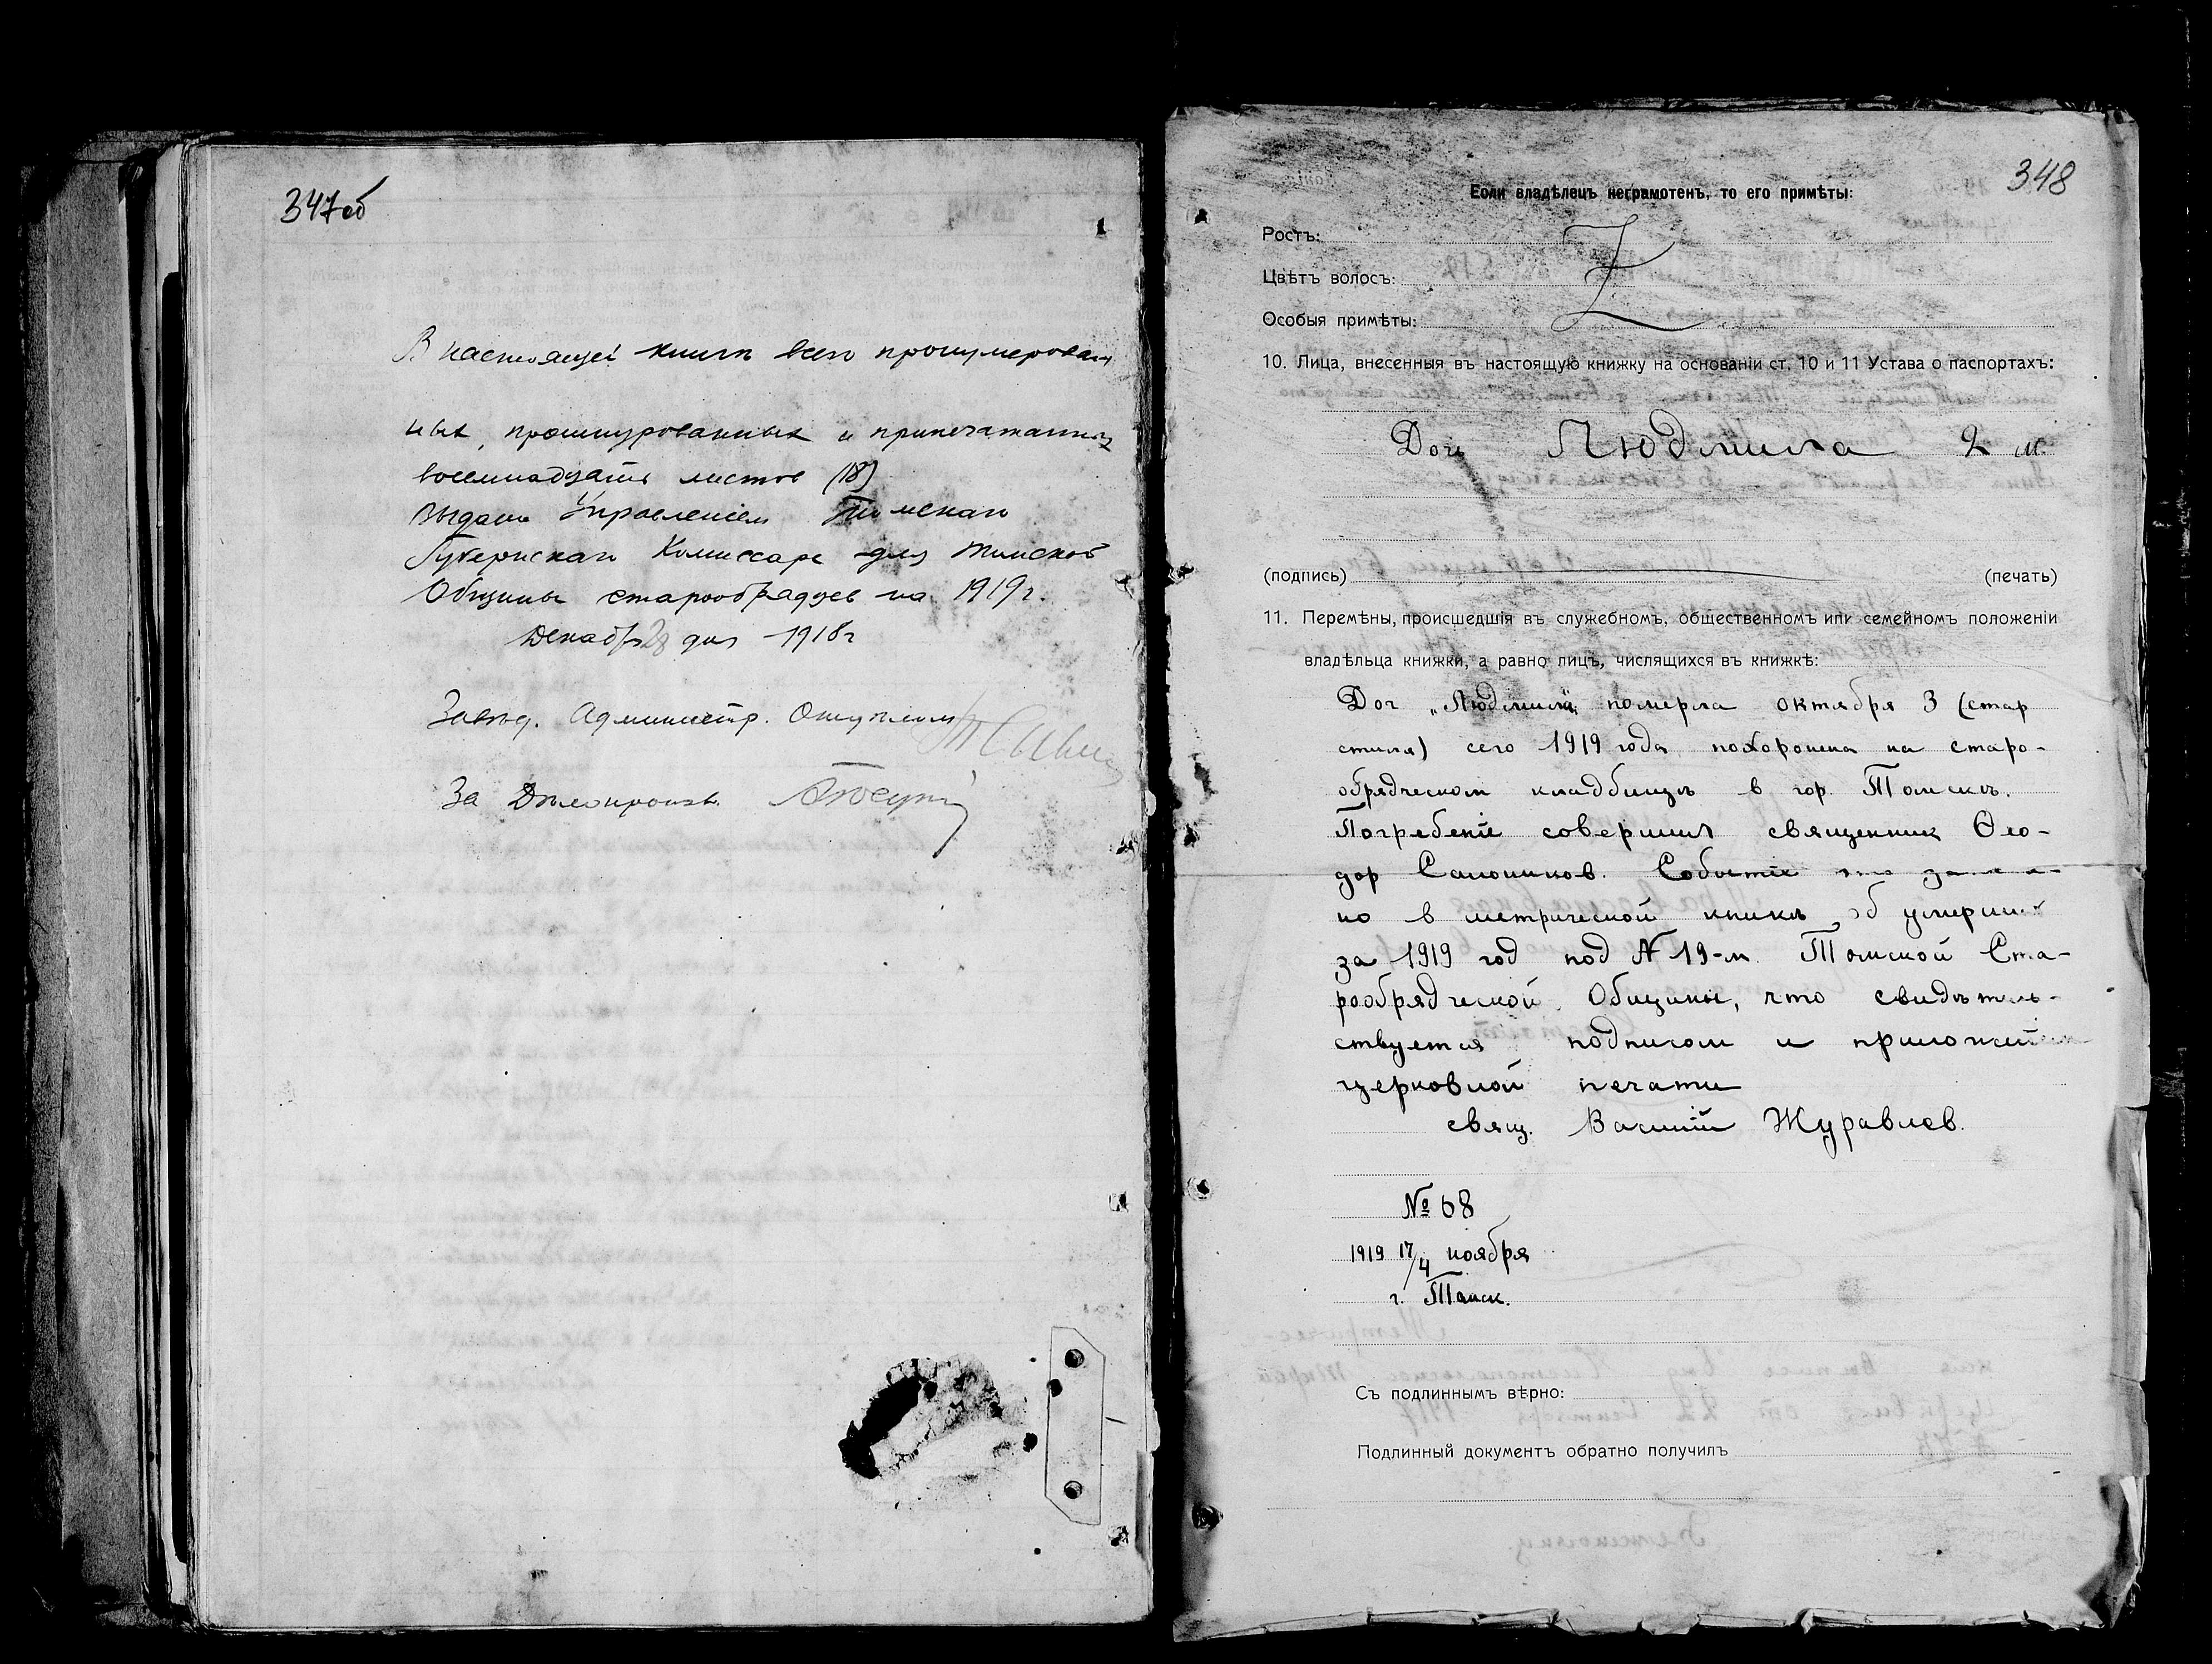 347об
В настоящей книге всего пронумерован
ных, прошнурованных и припечатанных
восемнадцать листов (18)
Выдана Управлением Томскаго
Губернскаго Комиссара для томской
Общины старообрядцев на 1919 г.
Декабря 28 дня 1918 г
Завѣд. Администр. Отдѣлом
За Дѣлопроизв.
348
Если владѣлецъ неграмотенъ, то его примѣты:
Ростъ:
Цвѣтъ волосъ:
Особыя примѣты:
10. Лица, внесенныя въ настоящую книжку на основаніи ст. 10 и 11 Устава о паспортахъ:
Дочь Людмила 2 м.
(подпись) (печать)
11. Перемѣны, происшедшія въ служебномъ, общественномъ или семейномъ положеніи
владѣльца книжки, а равно лицъ, числящихся въ книжкѣ:
Доч „Людмила" померла октября 3 (стар
стиля) сего 1919 года похоронена на старо-
обрядческом кладбищѣ в гор. Томскѣ.
Погребеніе совершил священник Ѳео-
дор Санников. Событіе это записа-
но в метрической книгѣ об умерших
за 1919 год под № 19-м. Томской Ста-
рообрядческой Общины, что свидѣтель-
ствуется подписом и приложеніем
церковной печати
свящ. Василій Журавлев.
№ 68
1919 17/4 ноября
г. Томск.
Съ подлиннымъ вѣрно:
Подлинный документъ обратно получилъ